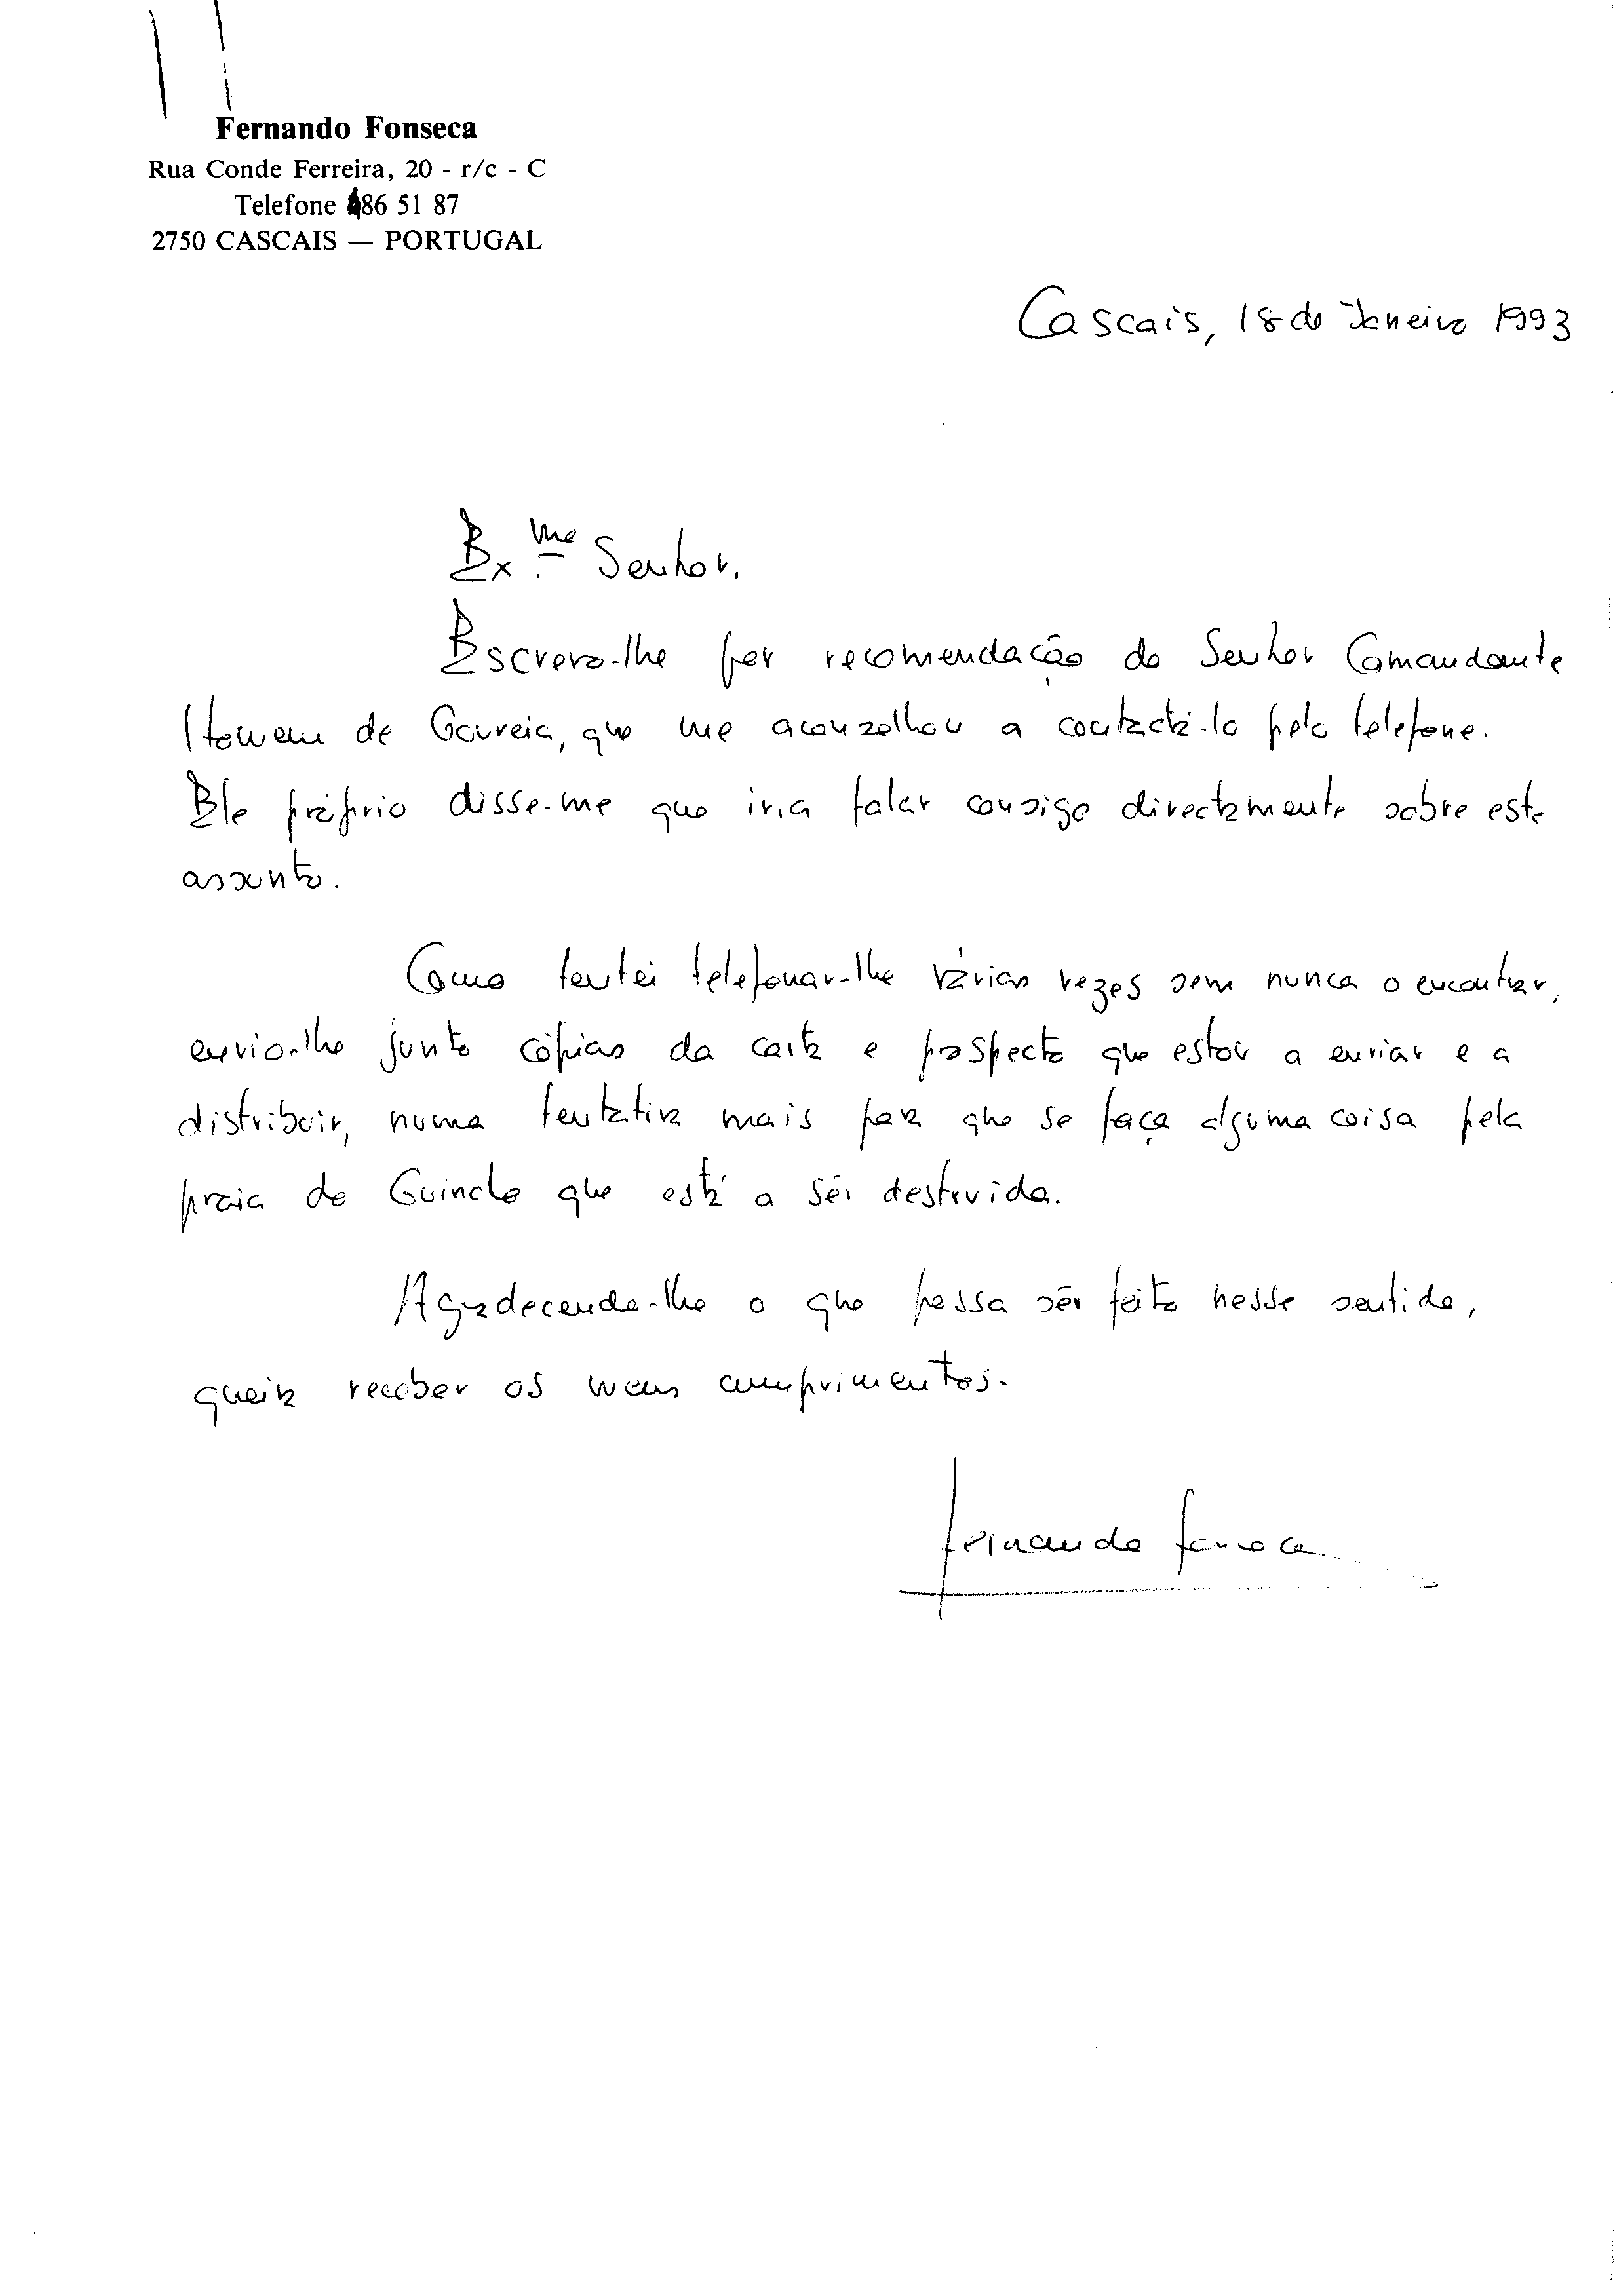 Fernando Fonseca
Rua Conde Ferreira, 20 - r/c - C
Telefone 486 51 87
2750 CASCAIS — PORTUGAL
Cascais, 18 de Janeiro 1993
Ex.mo Senhor,
Escrevo-lhe por recomendação do Senhor Comandante
Homem de Gouveia, que me aconselhou a contactá-lo pelo telefone.
Ele próprio disse-me que iria falar consigo directamente sobre este
assunto.
Como tentei telefonar-lhe várias vezes sem nunca o encontrar,
envio-lhe junto cópias da carta e prospecto que estou a enviar e a
distribuir, numa tentativa mais para que se faça alguma coisa pela
praia do Guincho que está a ser destruida.
Agradecendo-lhe o que possa ser feito nesse sentido,
queira receber os meus cumprimentos.
Fernando Fonseca